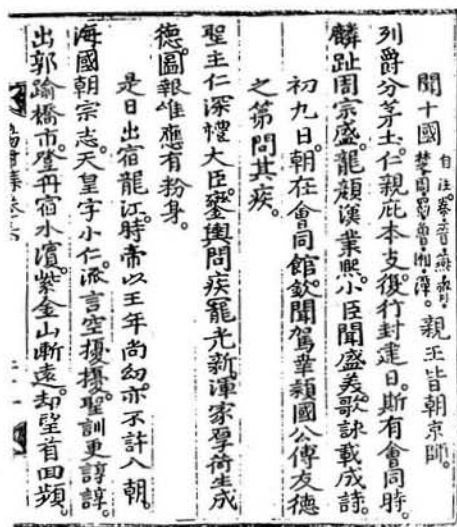 聞十國自注秦・晉・燕・齊・楚・周・蜀・魯・湘・潭。親王皆朝京師。
列爵分茅土。仁親庇本支。復行封建日。斯有會同時。
麟趾周宗盛。龍顏漢業熙。小臣聞盛美。歌詠載成詩。
初九日。朝在會同館。欽聞駕幸潁國公傅友德
之第問其疾。
聖主仁深禮大臣。鑾輿問疾寵光新。渾家厚荷生成
德。圖報唯應有粉身。
是日出宿龍江。時帝以王年尚幼。亦不許入朝。
海國朝宗志。天皇字小仁。派言空擾擾。聖訓更諄諄。
出郭踰橋市。登舟宿水濱。紫金山漸遠。却望首回頻。